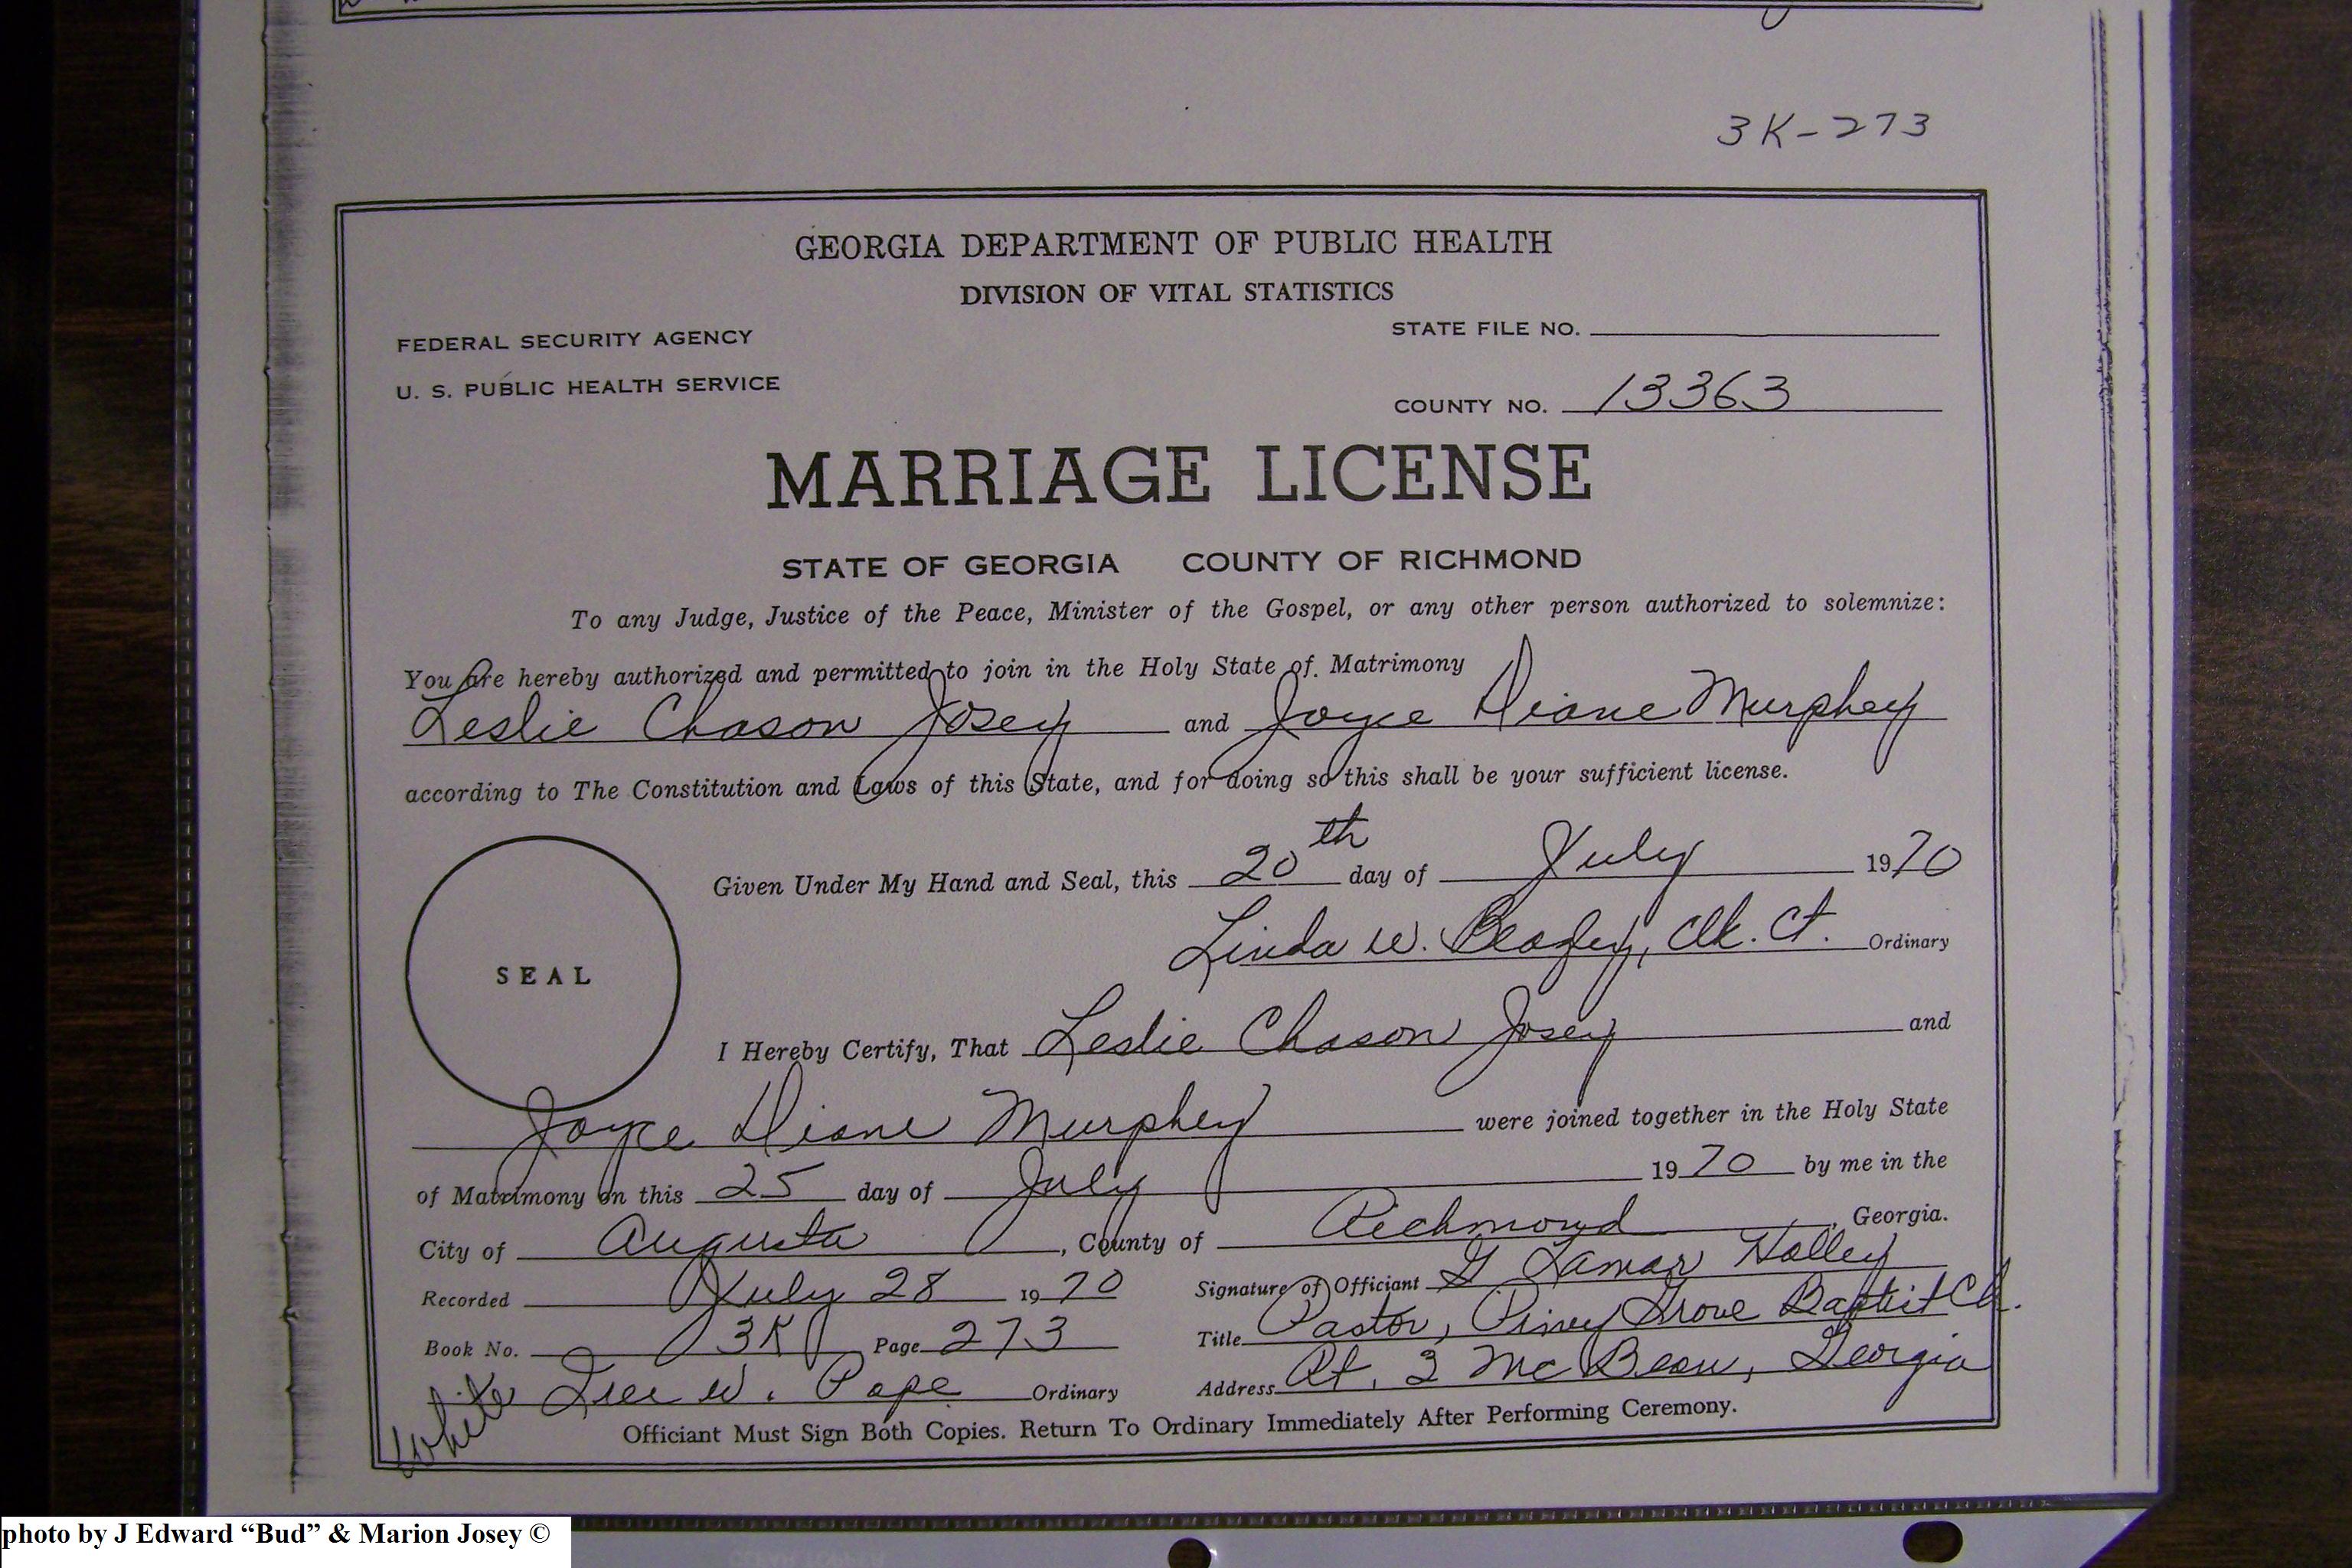 3K-273
GEORGIA DEPARTMENT OF PUBLIC HEALTH
DIVISION OF VITAL STATISTICS
FEDERAL SECURITY AGENCY
STATE FILE NO.
U. S. PUBLIC HEALTH SERVICE
COUNTY NO. 13363
MARRIAGE LICENSE
STATE OF GEORGIA COUNTY OF RICHMOND
To any Judge, Justice of the Peace, Minister of the Gospel, or any other person authorized to solemnize:
You are hereby authorized and permitted to join in the Holy State of Matrimony
Leslie Chason Josey and Joyce Diane Murphey
according to The Constitution and Laws of this State, and for doing so this shall be your sufficient license.
Given Under My Hand and Seal, this 20th day of July 1970
Linda W. Beazley, Clk. Ct. Ordinary
SEAL
I Hereby Certify, That Leslie Chason Josey and
Joyce Diane Murphey were joined together in the Holy State
of Matrimony on this 25 day of July 1970 by me in the
City of Augusta, County of Richmond, Georgia.
Recorded July 28 1970 Signature of Officiant G Lamar Holley
Book No. 3K Page 273 Title Pastor, Piney Grove Baptist Ch.
W. Pope Ordinary Address Rt. 3 McBean, Georgia
White
Officiant Must Sign Both Copies. Return To Ordinary Immediately After Performing Ceremony.
photo by J Edward “Bud” & Marion Josey ©